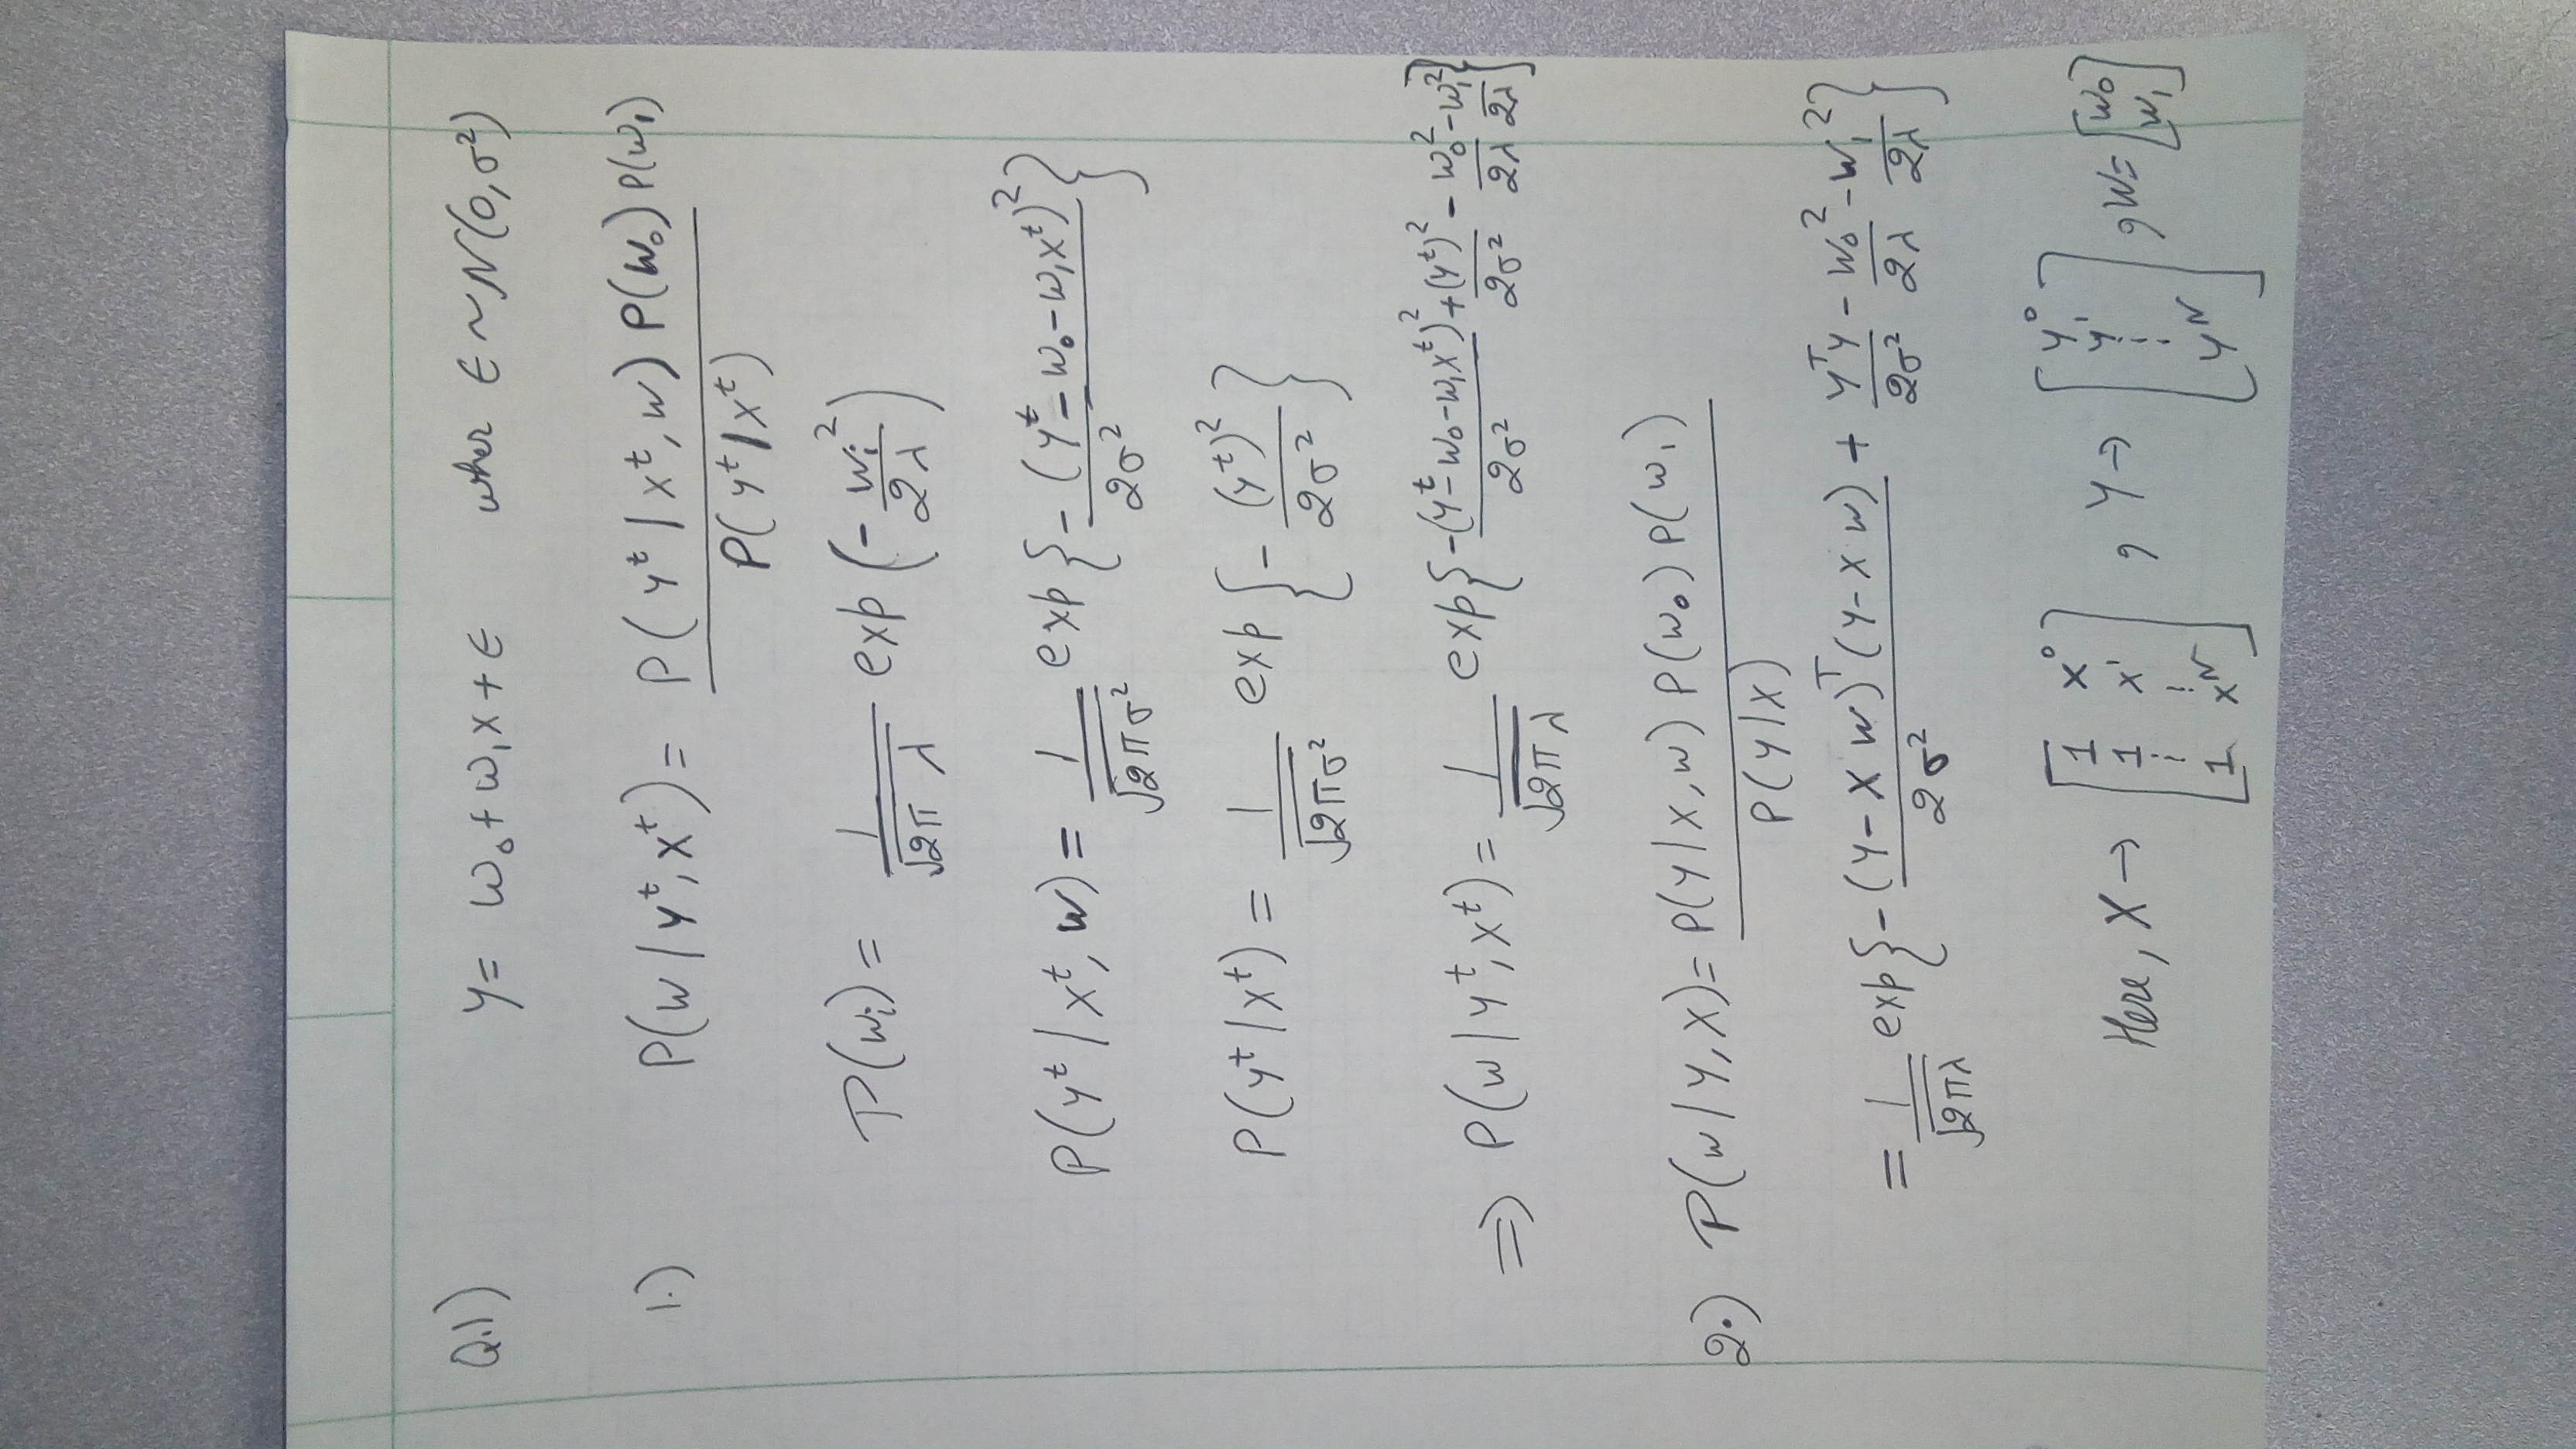 Q.1) y = w₀ + w₁x + ϵ wher ϵ ~ N(0, σ²)
1.) P(w / yᵗ, xᵗ) = P(yᵗ / xᵗ, w) P(w₀) P(w₁) / P(yᵗ / xᵗ)
P(wᵢ) = 1/√(2π λ) exp(- wᵢ²/2λ)
P(yᵗ / xᵗ, w) = 1/√(2πσ²) exp{- (yᵗ - w₀ - w₁xᵗ)²/2σ²}
P(yᵗ / xᵗ) = 1/√(2πσ²) exp{- (yᵗ)²/2σ²}
⇒ P(w / yᵗ, xᵗ) = 1/√(2π λ) exp{-(yᵗ - w₀ - w₁xᵗ)²/2σ² + (yᵗ)²/2σ² - w₀²/2λ - w₁²/2λ}
2.) P(w / Y, X) = P(Y / X, w) P(w₀) P(w₁) / P(Y / X)
= 1/√(2πλ) exp{- (Y - X w)ᵀ(Y - X w)/2σ² + YᵀY/2σ² - w₀²/2λ - w₁²/2λ}
Here, X → [1 x⁰; 1 x¹; ⋮ ⋮; 1 xᴺ], Y → [y⁰; y¹; ⋮; yᴺ], w = [w₀; w₁]